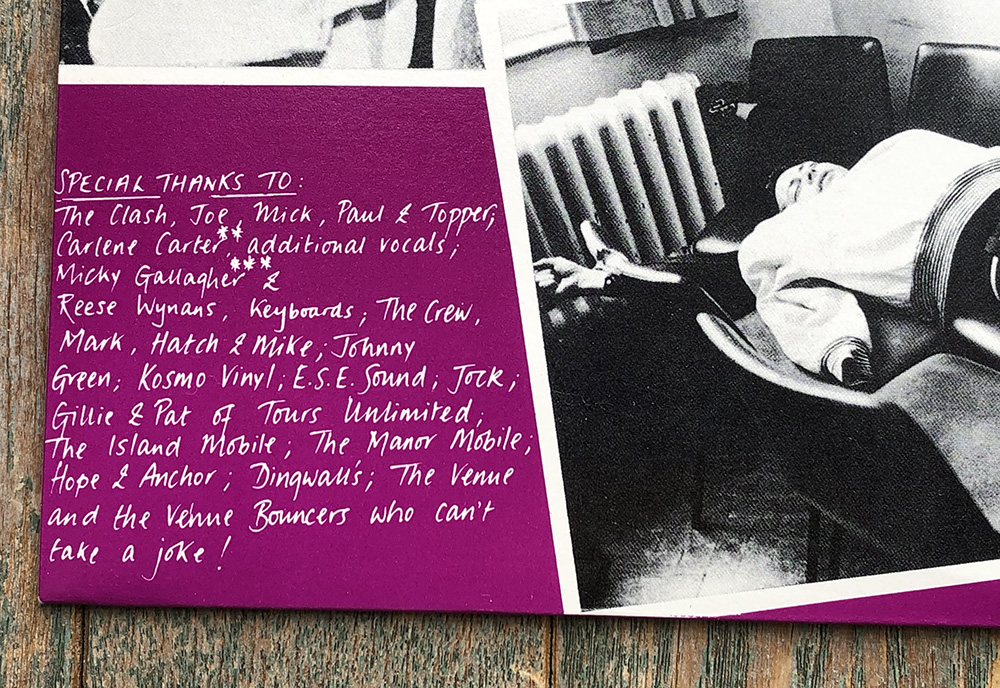 SPECIAL THANKS TO:
The Clash, Joe, Mick, Paul & Topper;
Carlene Carter** additional vocals;
Micky Gallagher*** &
Reese Wynans, Keyboards; The Crew,
Mark, Hatch & Mike; Johnny
Green; Kosmo Vinyl; E.S.E. Sound; Jock;
Gillie & Pat of Tours Unlimited;
The Island Mobile; The Manor Mobile;
Hope & Anchor; Dingwall's; The Venue
and the Venue Bouncers who can't
take a joke!